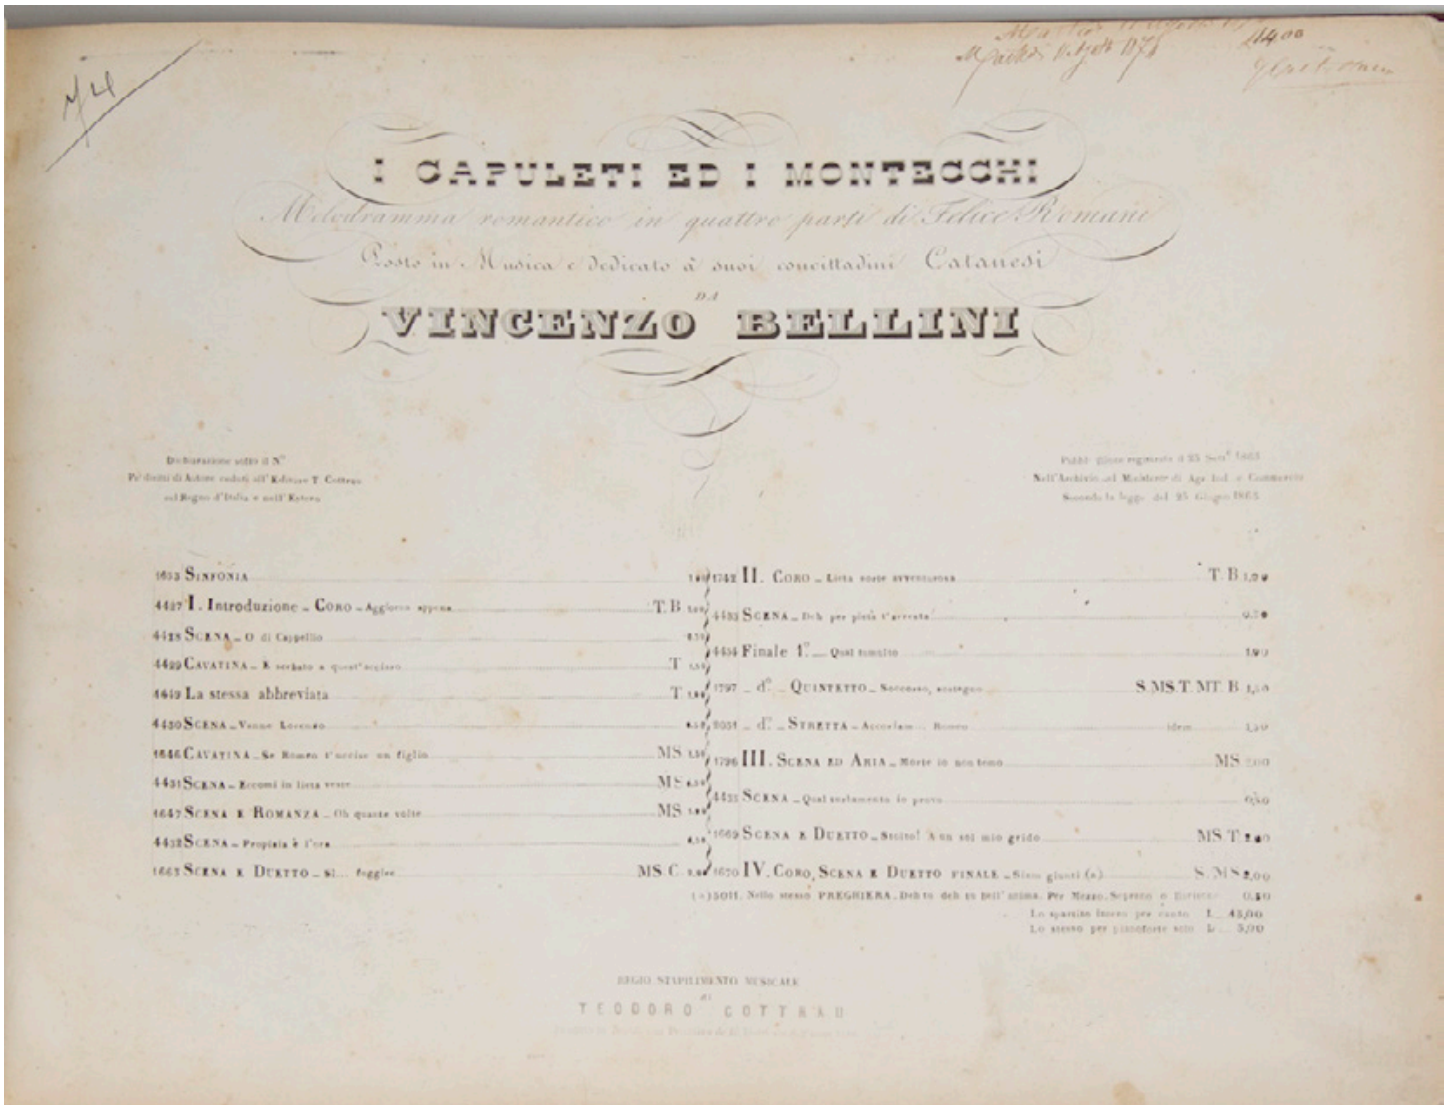 74
1400
I CAPULETI ED I MONTECCHI
Melodramma romantico in quattro parti di Felice Romani
Posto in Musica e dedicato à suoi concittadini Catanesi
DA
VINCENZO BELLINI
Dichiarazione sotto il N.º
Pe' diritti di Autore ceduti all' Editore T. Cottrau
nel Regno d'Italia e nell' Estero
registrata il 25 1863
Nell'Archivio del Ministero di Agr. Ind. e Commercio
Secondo la legge del 25 Giugno 1865
1653 SINFONIA
4427 I. Introduzione - CORO - Aggiorna appena T. B
4428 SCENA - O di Cappellio
4429 CAVATINA - È serbato a quest'acciaro T 1,50
4649 La stessa abbreviata T
4430 SCENA - Vanne Lorenzo
1646 CAVATINA - Se Romeo t'uccise un figlio MS 1,50
4431 SCENA - Eccomi in lieta veste MS
1647 SCENA E ROMANZA - Oh quante volte MS
4432 SCENA - Propizia è l'ora
SCENA E DUETTO - Sì... fuggire MS. C.
1742 II. CORO - Lieta notte avventurosa T. B
4433 SCENA - Deh per pietà t'arresta
4434 Finale 1.º - Qual tumulto
1797 - d.º - QUINTETTO - Soccorso, sostegno S. MS. T. MT. B. 1,50
2031 - d.º - STRETTA - Accorriam... Romeo idem 1,50
1796 III. SCENA ED ARIA - Morte io non temo MS 2,00
4435 SCENA - Qual turbamento io provo
1669 SCENA E DUETTO - Stolto! A un sol mio grido MS. T. 2,00
1670 IV. CORO, SCENA E DUETTO FINALE - Siam giunti (a) S. MS 2,00
(a) 5011. Nello stesso PREGHIERA - Deh tu deh tu bell'anima. Per Mezzo-Soprano o Baritono 0,50
Lo spartito intero per canto L.
Lo stesso per pianoforte solo L.
REGIO STABILIMENTO MUSICALE
di
TEODORO COTTRAU